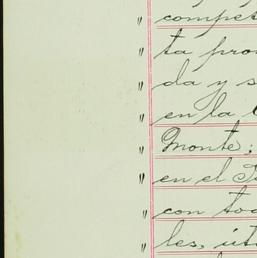 " compet
" ta pro
" da y s
" en la
" Monte;
" en el
" con to
" les, út